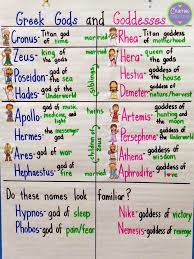 Greek Gods and Goddesses
Cronus- Titan god married Rhea- Titan goddess of motherhood
Zeus- king of the gods married Hera- queen of the gods
Poseidon- god of the sea Hestia- goddess of the house
Hades- god of the Underworld Demeter- goddess of nature/harvest
siblings
children
Apollo- god of music, medicine twins Artemis- goddess of hunting and the moon
Hermes- messenger Persephone- goddess of the Underworld
Ares- god of war Athena- goddess of wisdom
Hephaestus- god of fire married Aphrodite- goddess of love
Do these names look familiar?
Hypnos- god of sleep Nike- goddess of victory
Phobos- god of pain/fear Nemesis- goddess of revenge